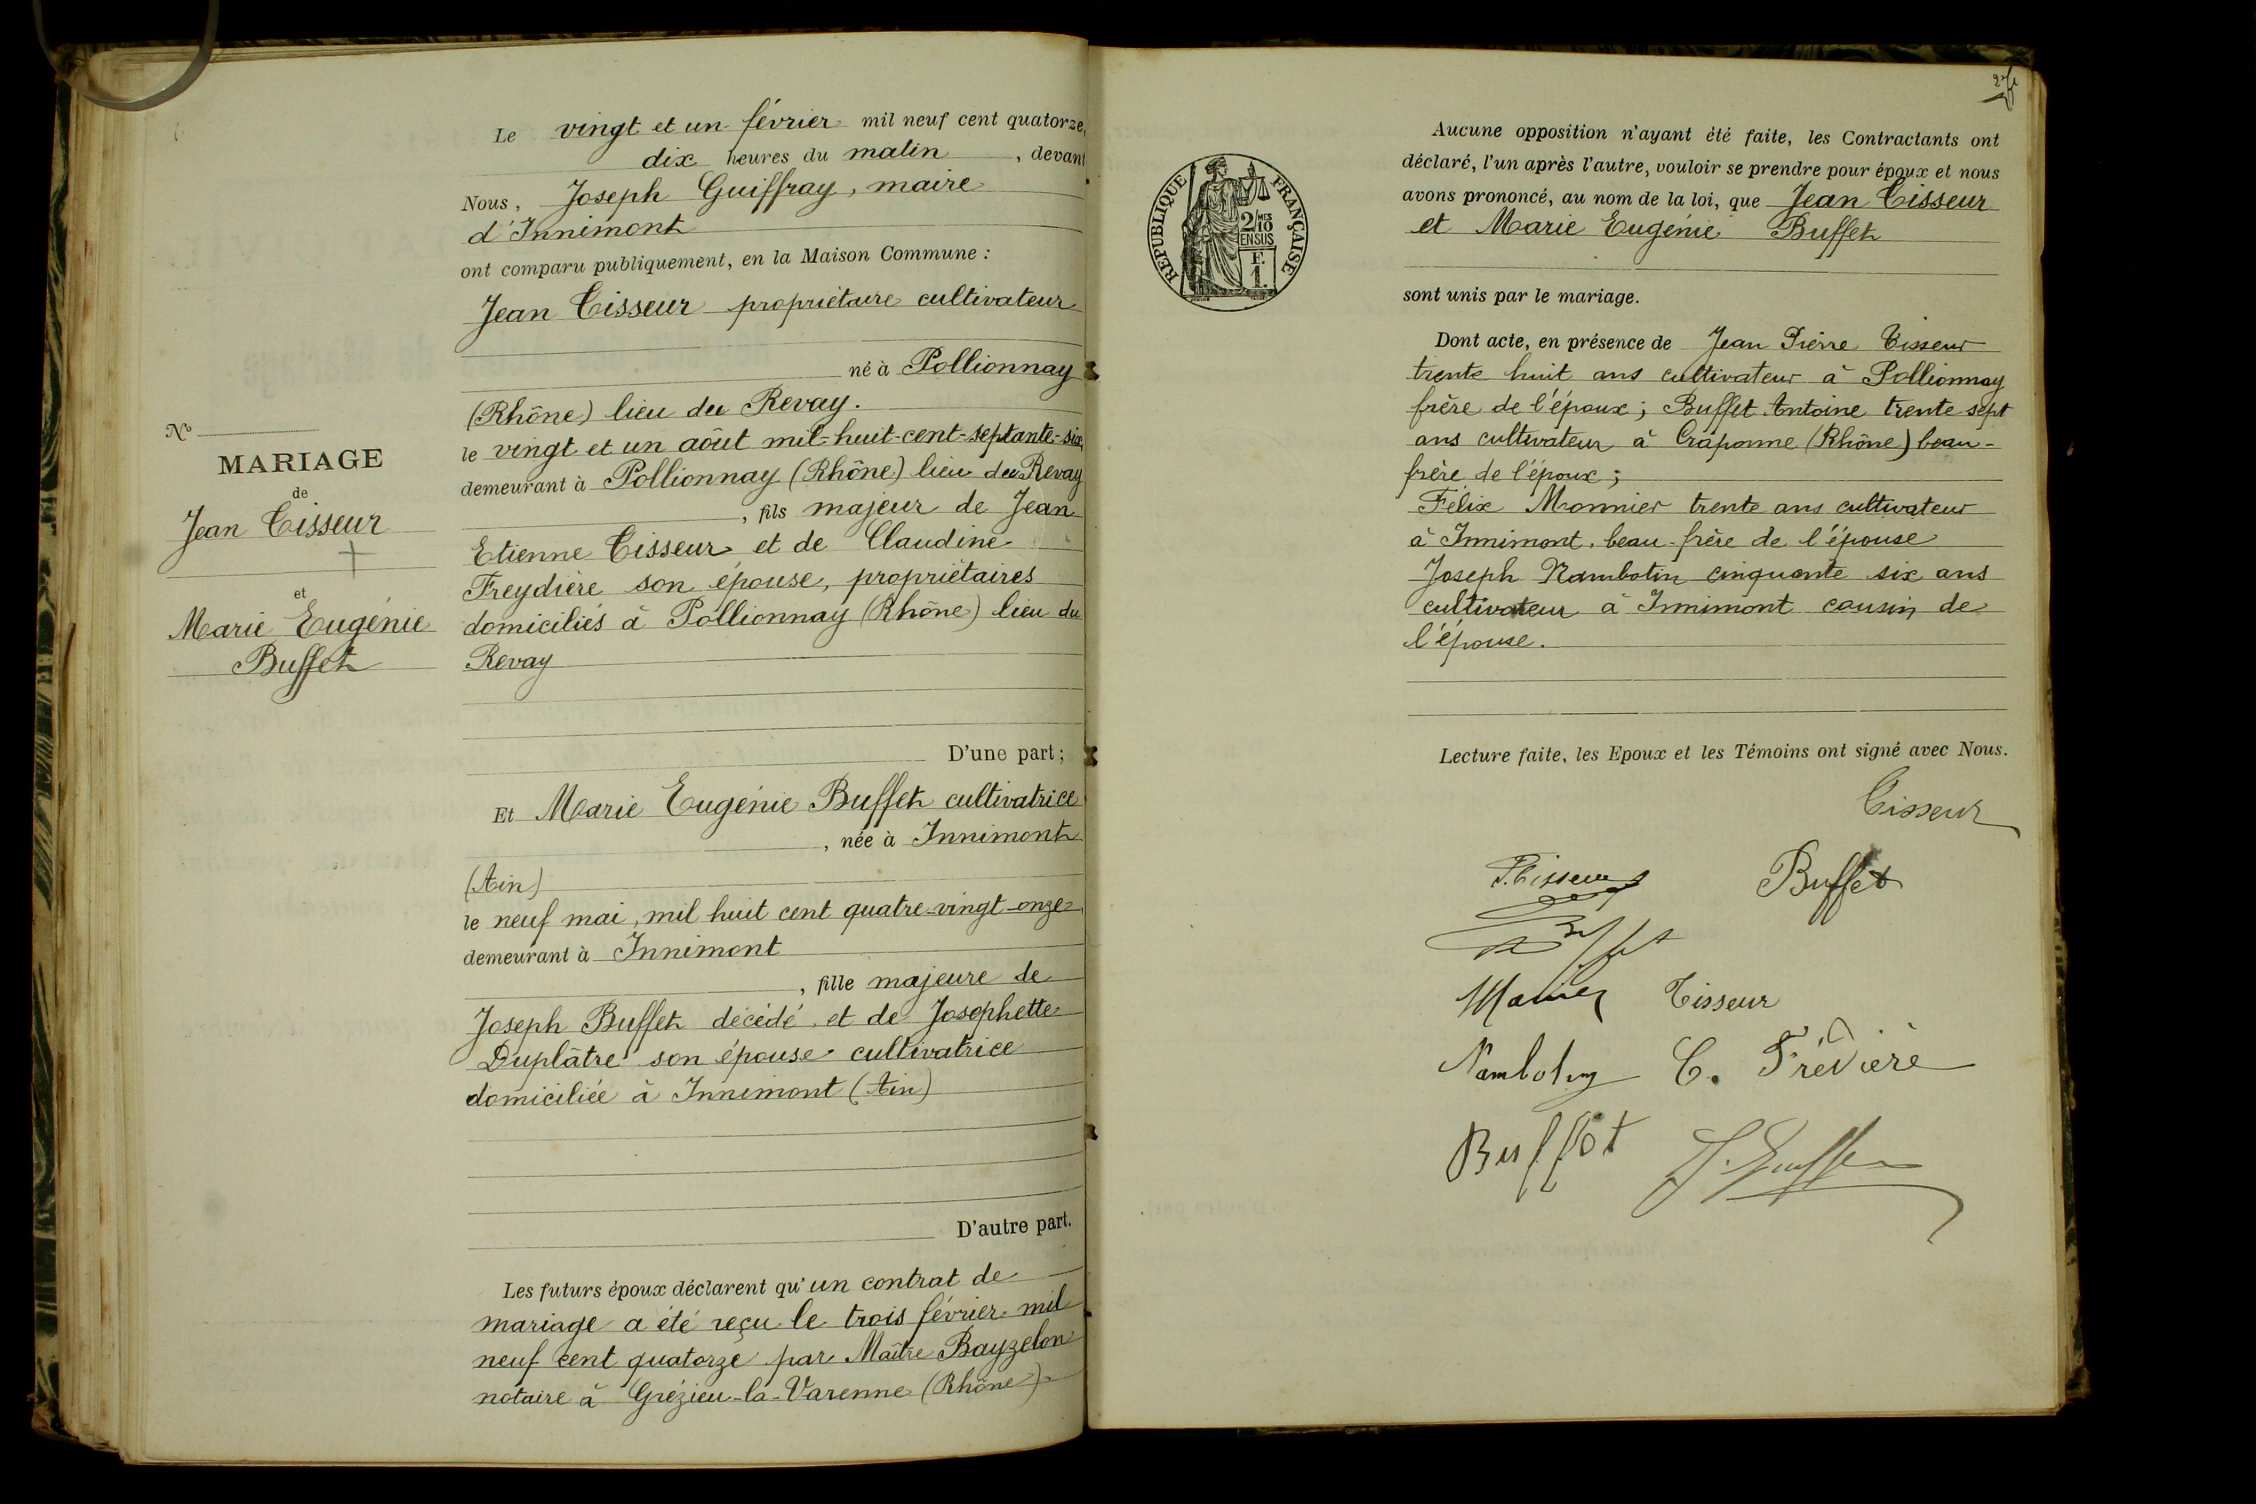 Le vingt et un février mil neuf cent quatorze,
dix heures du matin , devant
Nous, Joseph Guiffray, maire
d'Innimont
ont comparu publiquement, en la Maison Commune :
Jean Tisseur propriétaire cultivateur
né à Pollionnay
(Rhône) lieu du Revay.
le vingt et un août mil-huit-cent-septante-six,
demeurant à Pollionnay (Rhône) lieu du Revay
, fils majeur de Jean
Etienne Tisseur et de Claudine
Freydière son épouse, propriétaires
domiciliés à Pollionnay (Rhône) lieu du
Revay
D'une part ;
Et Marie Eugénie Buffet cultivatrice
, née à Innimont
(Ain)
le neuf mai, mil huit cent quatre-vingt-onze,
demeurant à Innimont
, fille majeure de
Joseph Buffet décédé et de Josephette
Duplâtre son épouse cultivatrice
domiciliée à Innimont (Ain)
D'autre part.
Les futurs époux déclarent qu'un contrat de
mariage a été reçu le trois février mil
neuf cent quatorze par Maître Bayzelon
notaire à Grézieu-la-Varenne (Rhône)
No
MARIAGE
de
Jean Tisseur
et
Marie Eugénie
Buffet
RÉPUBLIQUE FRANÇAISE
2/10
MES
EN SUS
F.
1.
Aucune opposition n'ayant été faite, les Contractants ont
déclaré, l'un après l'autre, vouloir se prendre pour époux et nous
avons prononcé, au nom de la loi, que Jean Tisseur
et Marie Eugénie Buffet
sont unis par le mariage.
Dont acte, en présence de Jean Pierre Tisseur
trente huit ans cultivateur à Pollionnay
frère de l'époux ; Buffet Antoine trente sept
ans cultivateur à Craponne (Rhône) beau-
frère de l'époux ;
Félix Monnier trente ans cultivateur
à Innimont, beau-frère de l'épouse
Joseph Nambotin cinquante six ans
cultivateur à Innimont cousin de
l'épouse.
Lecture faite, les Epoux et les Témoins ont signé avec Nous.
Tisseur
P. Tisseur Buffet
Buffet
Tisseur
Nambotin C. Frévière
Buffet J. Guiffray